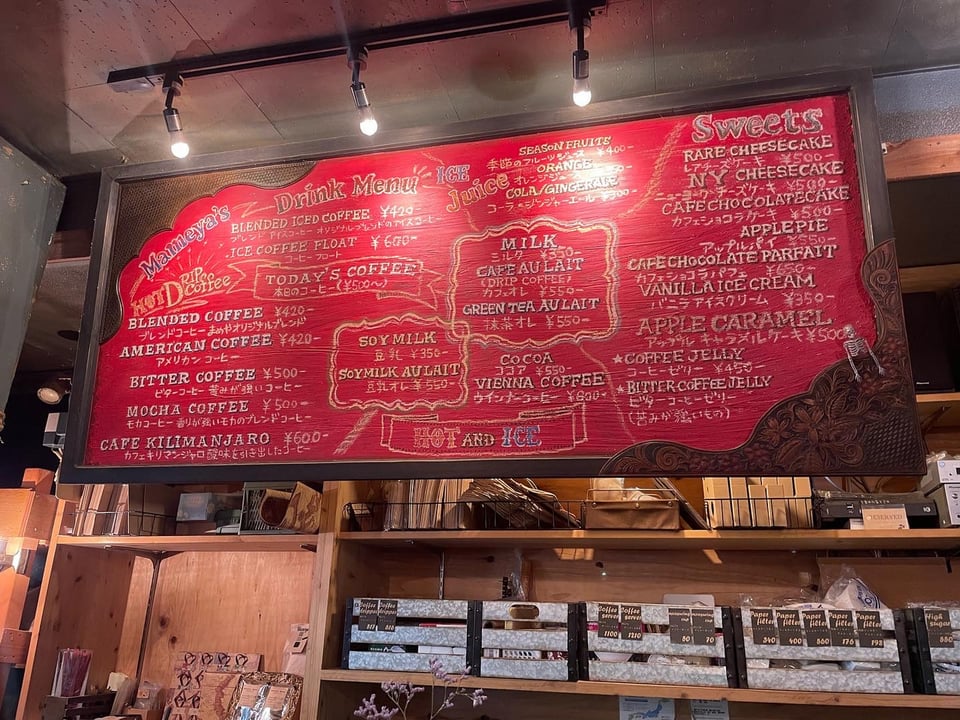 Mameya's
Drink Menu
BLENDED ICED COFFEE ¥420-
ブレンド アイスコーヒー オリジナルブレンドのアイスコーヒー
ICE COFFEE FLOAT ¥600-
コーヒー フロート
TODAY'S COFFEE
本日のコーヒー (¥500~)
HOT DRIP Coffee
BLENDED COFFEE ¥420-
ブレンドコーヒー まめやオリジナルブレンド
AMERICAN COFFEE ¥420-
アメリカン コーヒー
BITTER COFFEE ¥500-
ビターコーヒー 苦みが強いコーヒー
MOCHA COFFEE ¥500-
モカコーヒー 香りが強いモカのブレンドコーヒー
CAFE KILIMANJARO ¥600-
カフェキリマンジャロ 酸味を引き出したコーヒー
ICE
Juice
SEASON FRUITS
季節のフルーツジュース ¥400-
ORANGE
COLA/GINGERALE
コーラ・ジンジャーエール
MILK
ミルク ¥350-
CAFE AU LAIT
(DRIP COFFEE)
カフェオレ ¥550-
GREEN TEA AU LAIT
抹茶オレ ¥550-
SOY MILK
豆乳 ¥350-
SOY MILK AU LAIT
豆乳オレ ¥550-
COCOA
ココア ¥550-
VIENNA COFFEE
ウインナーコーヒー ¥600-
HOT AND ICE
Sweets
RARE CHEESECAKE
レアチーズケーキ ¥500-
NY CHEESECAKE
ニューヨークチーズケーキ ¥500-
CAFE CHOCOLATE CAKE
カフェショコラケーキ ¥500-
APPLE PIE
アップルパイ ¥550-
CAFE CHOCOLATE PARFAIT
カフェショコラパフェ ¥650-
VANILLA ICE CREAM
バニラ アイスクリーム ¥350-
APPLE CARAMEL
アップル キャラメルケーキ ¥500
★COFFEE JELLY
コーヒーゼリー ¥450-
★BITTER COFFEE JELLY
ビターコーヒーゼリー
(苦みが強いもの)
Coffee dripper
Coffee dripper
Coffee server 1100
Coffee server 1210
80
70
Paper filter 340
Paper filter 400
Paper filter
Paper filter 176
Paper filter 198
High sugar 880